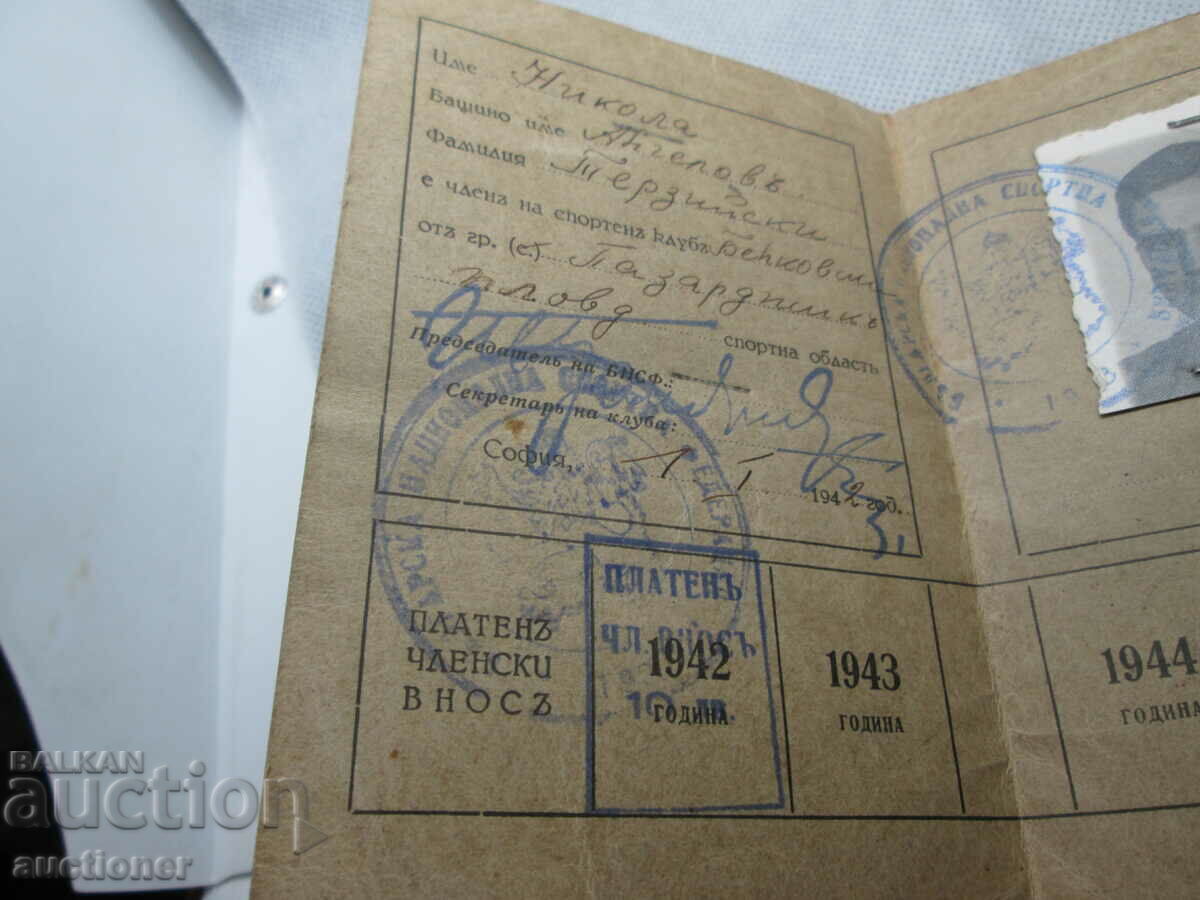 Име Никола
Башино име Ангеловъ
Фамилия Терзийски
е членъ на спортенъ клубъ Бенковски
отъ гр. (с.) Пазарджикъ
пловд спортна область
Председатель на БНСФ.:
Секретарь на клуба:
София, 1 I 1942 год.
ПЛАТЕНЪ
ЧЛЕНСКИ
ВНОСЪ
ПЛАТЕНЪ
ЧЛ. ВНОСЪ
10 лв.
1942
ГОДИНА
1943
ГОДИНА
1944
ГОДИНА
НАЦИОНАЛНА СПОРТНА
BALKAN
auction
auctioner